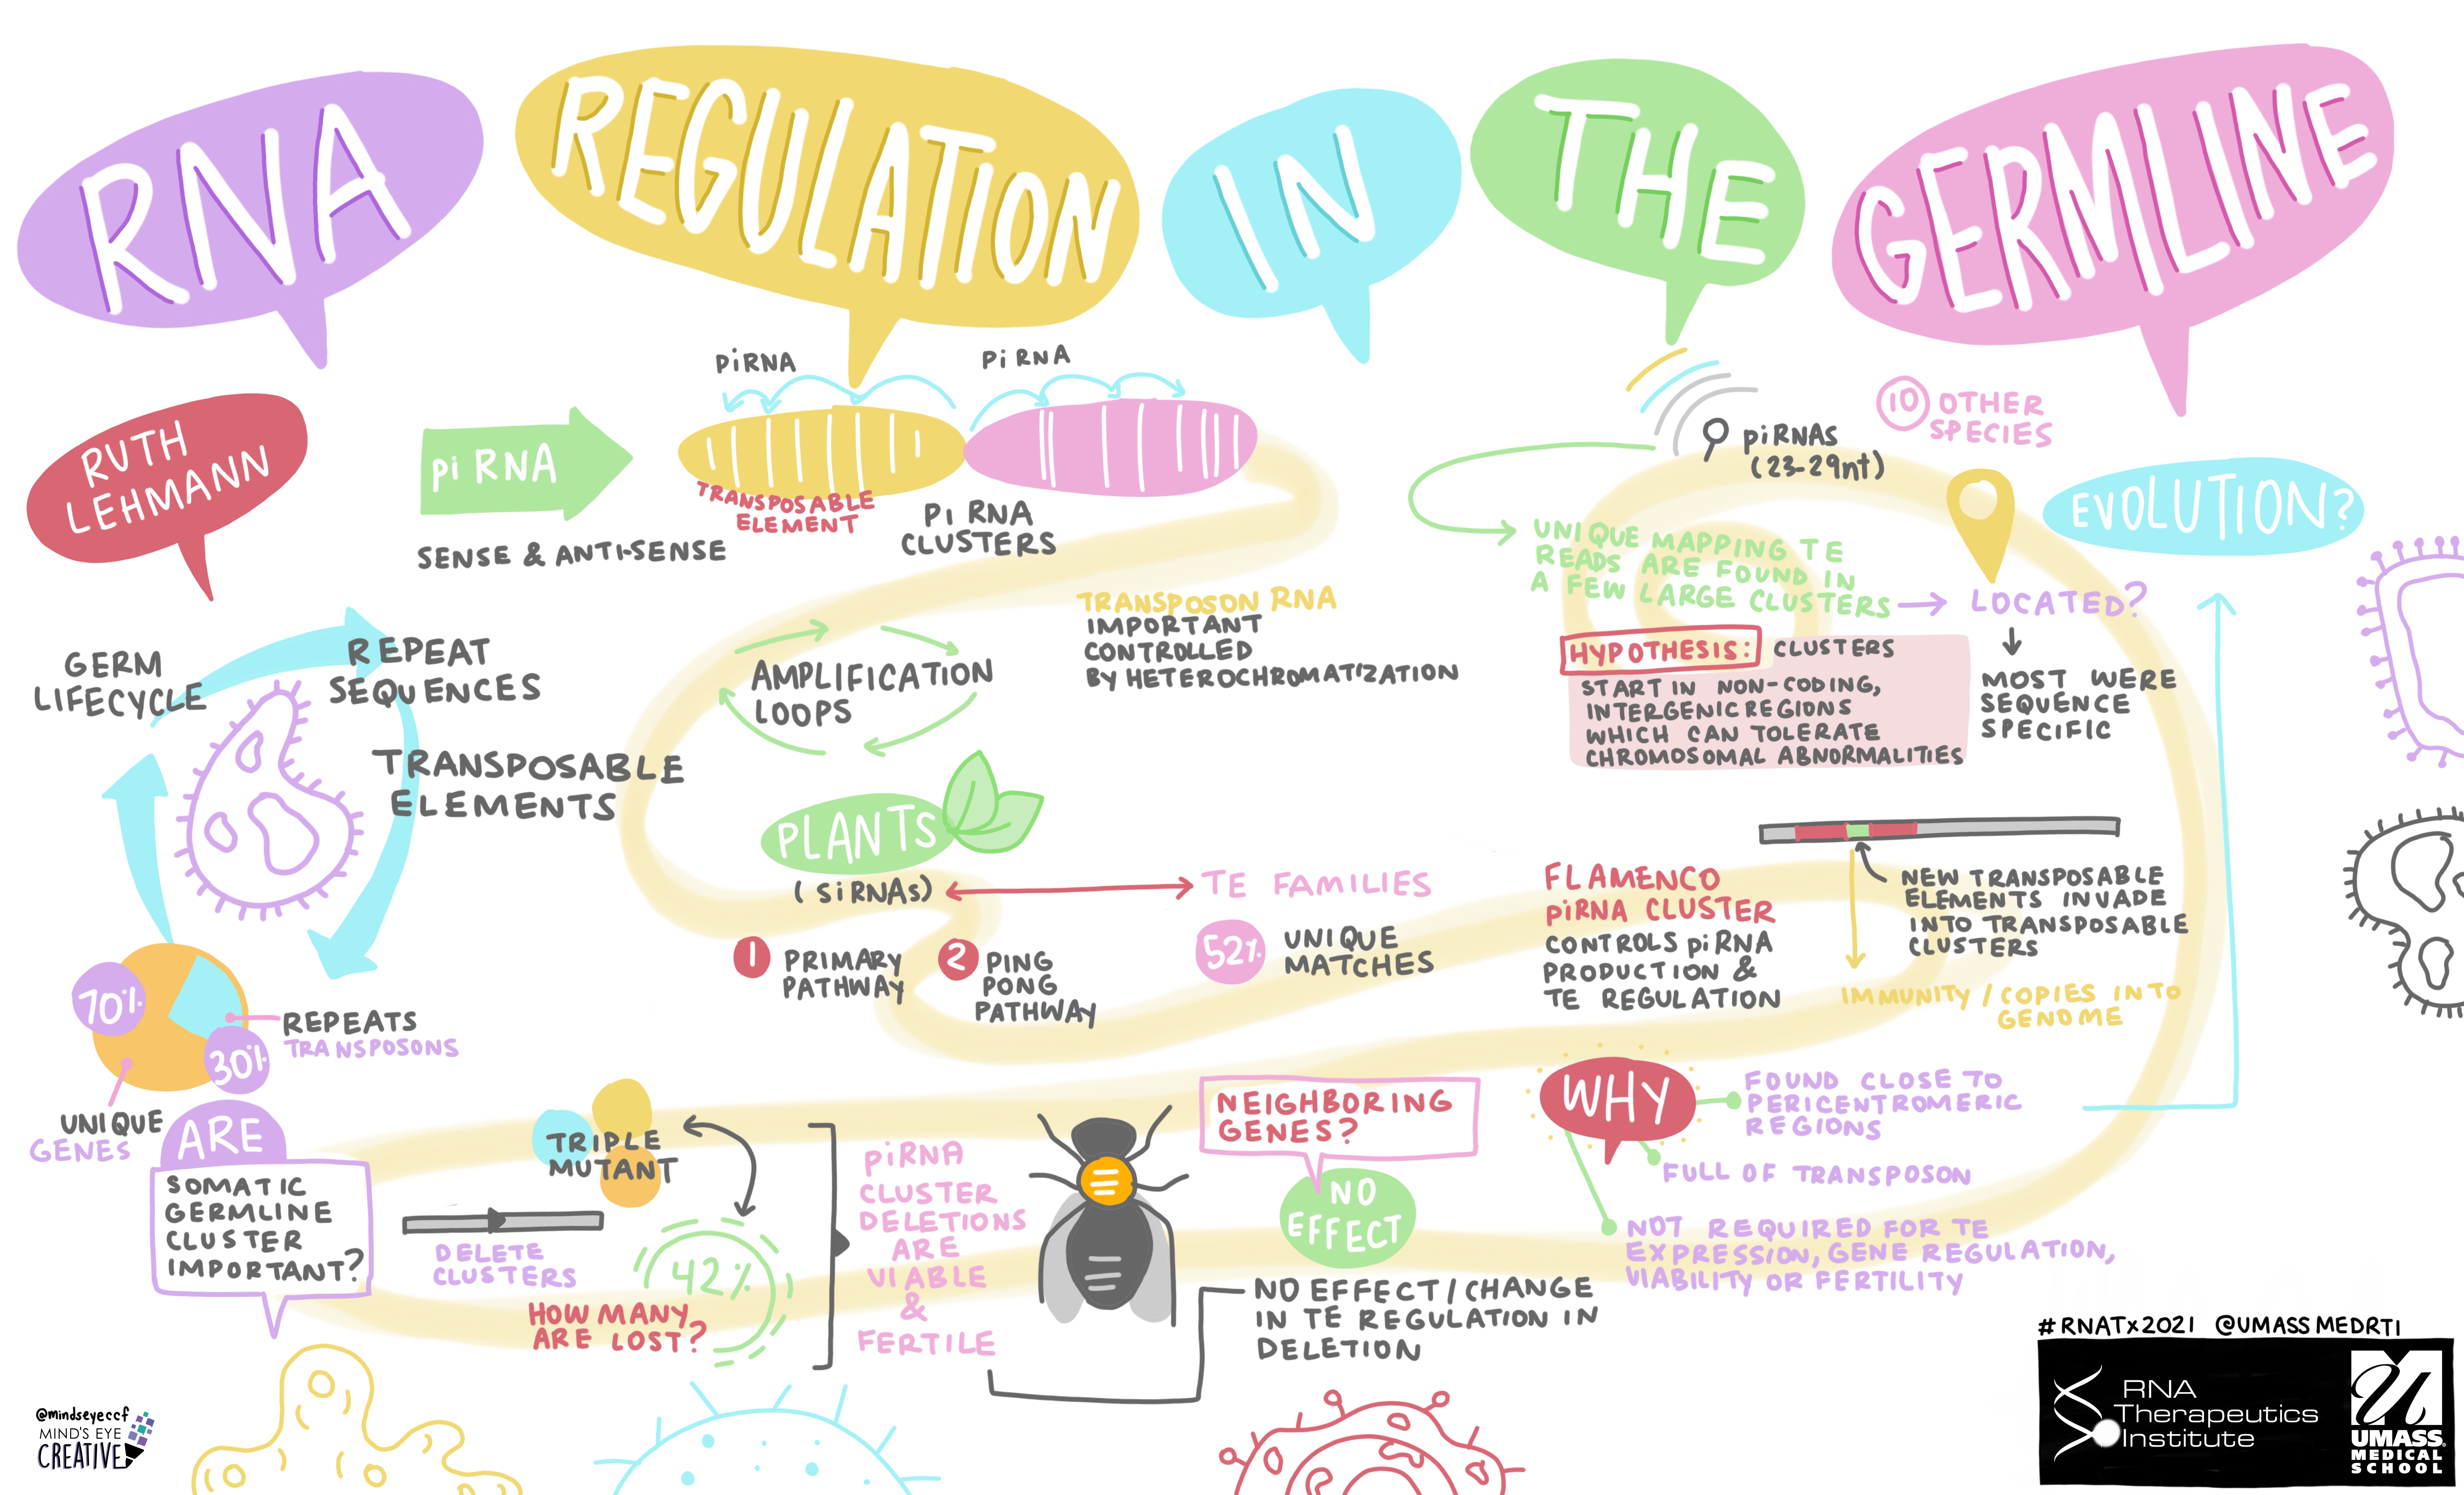 RNA
REGULATION
IN
THE
GERMLINE
RUTH
LEHMANN
GERM
LIFECYCLE
REPEAT
SEQUENCES
TRANSPOSABLE
ELEMENTS
70%
30%
REPEATS
TRANSPOSONS
UNIQUE
GENES
piRNA
SENSE & ANTI-SENSE
piRNA
piRNA
TRANSPOSABLE
ELEMENT
Pi RNA
CLUSTERS
AMPLIFICATION
LOOPS
TRANSPOSON RNA
IMPORTANT
CONTROLLED
BY HETEROCHROMATIZATION
PLANTS
(siRNAs)
TE FAMILIES
1 PRIMARY
PATHWAY
2 PING
PONG
PATHWAY
52%
UNIQUE
MATCHES
piRNAs
(23-29nt)
10 OTHER
SPECIES
EVOLUTION?
UNIQUE MAPPING TE
READS ARE FOUND IN
A FEW LARGE CLUSTERS
LOCATED?
MOST WERE
SEQUENCE
SPECIFIC
HYPOTHESIS: CLUSTERS
START IN NON-CODING,
INTERGENIC REGIONS
WHICH CAN TOLERATE
CHROMOSOMAL ABNORMALITIES
FLAMENCO
piRNA CLUSTER
CONTROLS piRNA
PRODUCTION &
TE REGULATION
NEW TRANSPOSABLE
ELEMENTS INVADE
INTO TRANSPOSABLE
CLUSTERS
IMMUNITY / COPIES INTO
GENOME
ARE
SOMATIC
GERMLINE
CLUSTER
IMPORTANT?
DELETE
CLUSTERS
TRIPLE
MUTANT
42%
HOW MANY
ARE LOST?
piRNA
CLUSTER
DELETIONS
ARE
VIABLE
&
FERTILE
NEIGHBORING
GENES?
NO
EFFECT
NO EFFECT/CHANGE
IN TE REGULATION IN
DELETION
WHY
FOUND CLOSE TO
PERICENTROMERIC
REGIONS
FULL OF TRANSPOSON
NOT REQUIRED FOR TE
EXPRESSION, GENE REGULATION,
VIABILITY OR FERTILITY
@mindseyeccf
MIND'S EYE
CREATIVE
#RNATx2021 @UMASSMEDRTI
RNA
Therapeutics
Institute
UMASS
MEDICAL
SCHOOL